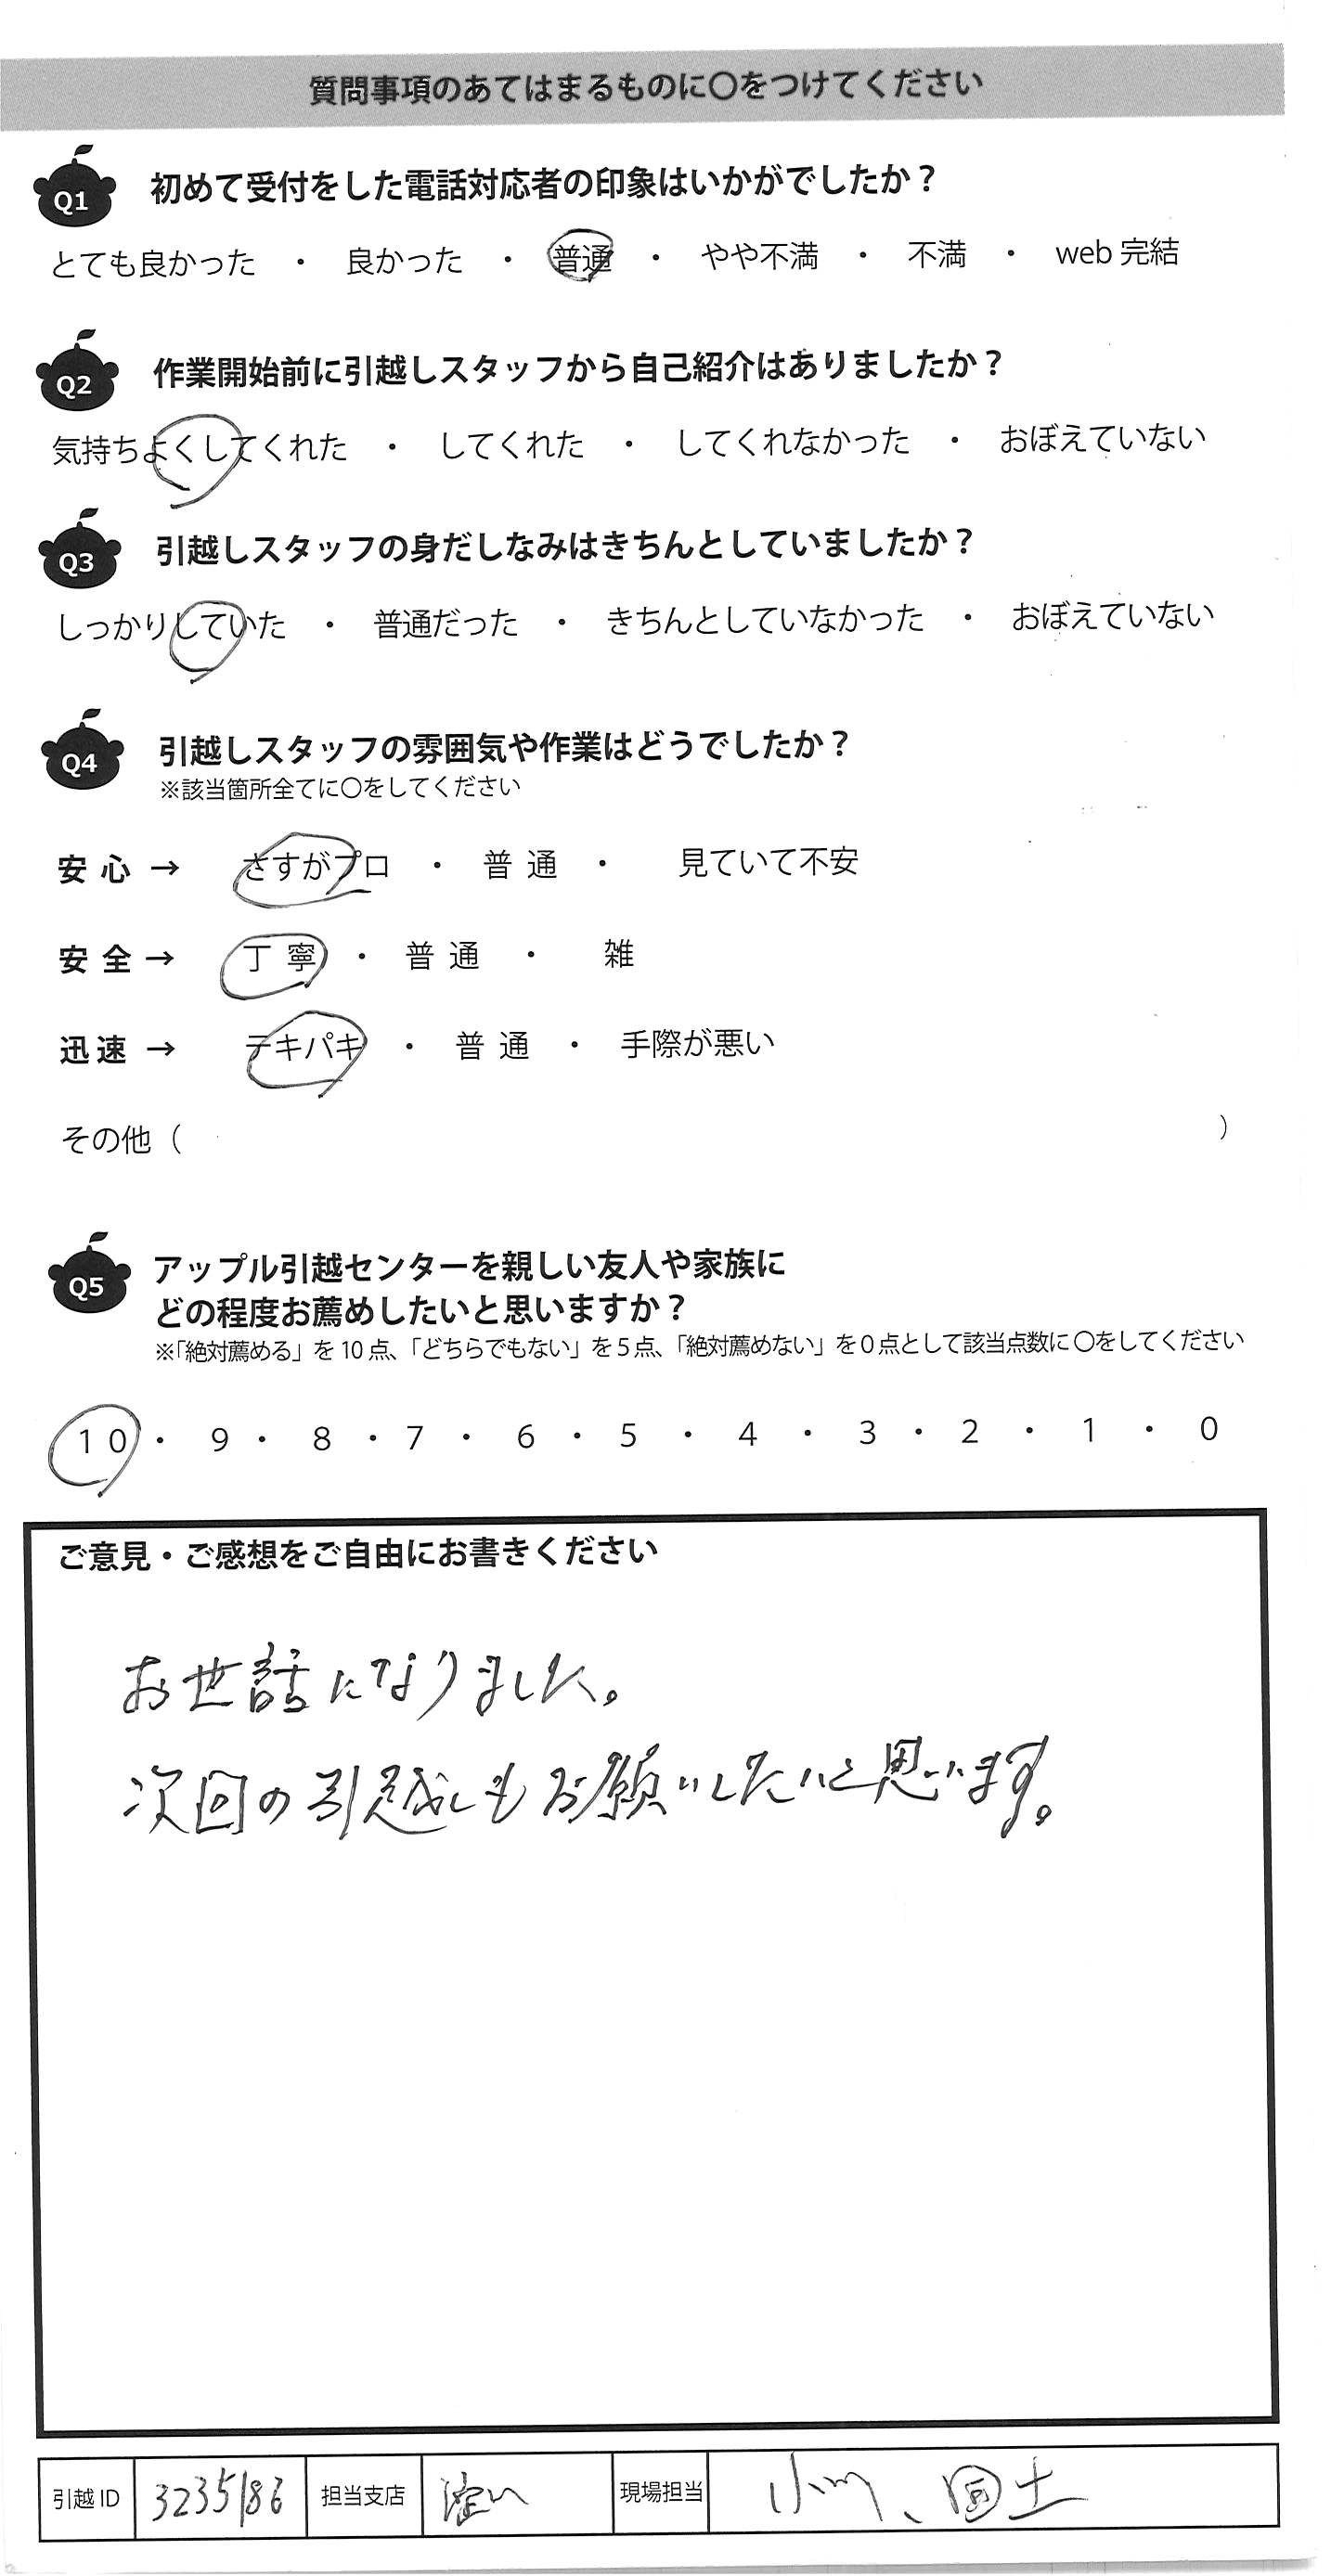 質問事項のあてはまるものに〇をつけてください
Q1 初めて受付をした電話対応者の印象はいかがでしたか？
とても良かった ・ 良かった ・ 普通 ・ やや不満 ・ 不満 ・ web 完結
Q2 作業開始前に引越しスタッフから自己紹介はありましたか？
気持ちよくしてくれた ・ してくれた ・ してくれなかった ・ おぼえていない
Q3 引越しスタッフの身だしなみはきちんとしていましたか？
しっかりしていた ・ 普通だった ・ きちんとしていなかった ・ おぼえていない
Q4 引越しスタッフの雰囲気や作業はどうでしたか？
※該当箇所全てに〇をしてください
安心 → さすがプロ ・ 普通 ・ 見ていて不安
安全 → 丁寧 ・ 普通 ・ 雑
迅速 → テキパキ ・ 普通 ・ 手際が悪い
その他（ ）
Q5 アップル引越センターを親しい友人や家族に
どの程度お薦めしたいと思いますか？
※「絶対薦める」を10点、「どちらでもない」を5点、「絶対薦めない」を0点として該当点数に〇をしてください
10 ・ 9 ・ 8 ・ 7 ・ 6 ・ 5 ・ 4 ・ 3 ・ 2 ・ 1 ・ 0
ご意見・ご感想をご自由にお書きください
お世話になりました。
次回の引越しもお願いしたいと思います。
引越ID 3235186 担当支店 現場担当